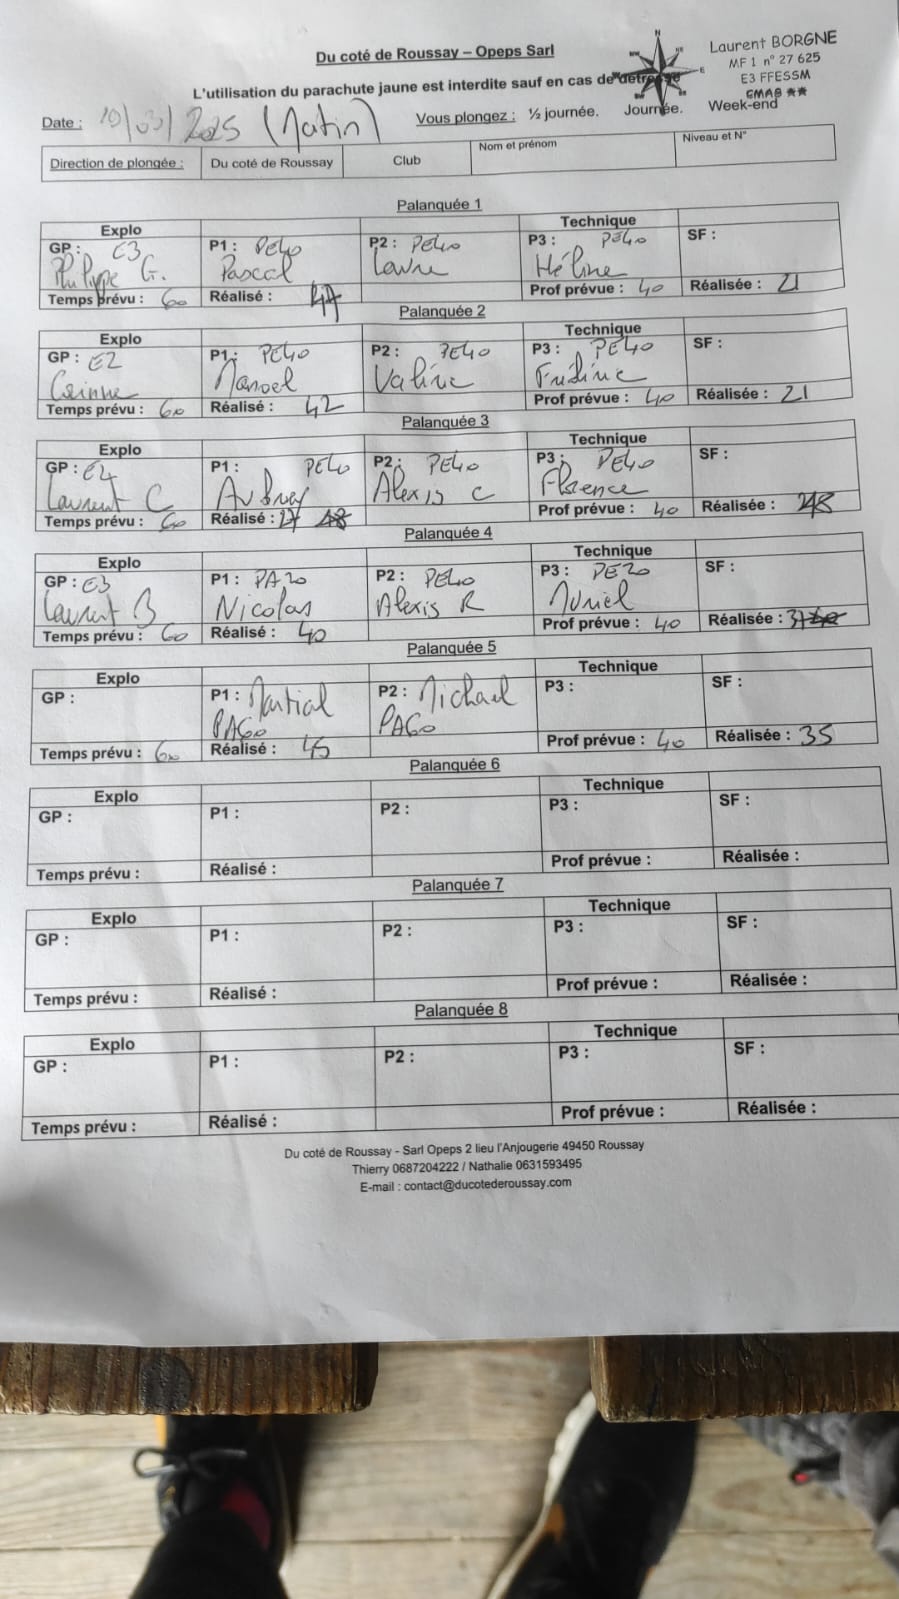 Du coté de Roussay – Opeps Sarl
Laurent BORGNE
MF 1 n° 27 625
E3 FFESSM
CMAS ★★
N
E
L'utilisation du parachute jaune est interdite sauf en cas de détresse
Date : 10/03/2025 (Matin)
Vous plongez : ½ journée. Journée. Week-end
Direction de plongée : Du coté de Roussay Club Nom et prénom Niveau et N°
Palanquée 1
Explo Technique
GP : E3 P1 : PE40 P2 : PE40 P3 : PE40 SF :
Philippe G. Pascal Laure Hélène
Temps prévu : 60 Réalisé : 47 Prof prévue : 40 Réalisée : 21
Palanquée 2
Explo Technique
GP : E2 P1 : PE40 P2 : PE40 P3 : PE40 SF :
Corinne Manoel Valérie
Temps prévu : 60 Réalisé : 42 Prof prévue : 40 Réalisée : 21
Palanquée 3
Explo Technique
GP : E4 P1 : PE40 P2 : PE40 P3 : PE40 SF :
Laurent C Audray Alexis C Florence
Temps prévu : 60 Réalisé : Prof prévue : 40 Réalisée :
Palanquée 4
Explo Technique
GP : E3 P1 : PA20 P2 : PE40 P3 : PE20 SF :
Laurent B Nicolas Alexis R Muriel
Temps prévu : 60 Réalisé : 40 Prof prévue : 40 Réalisée :
Palanquée 5
Explo Technique
GP : P1 : Martial P2 : Michael P3 : SF :
PA60 PA60
Temps prévu : 60 Réalisé : 45 Prof prévue : 40 Réalisée : 35
Palanquée 6
Explo Technique
GP : P1 : P2 : P3 : SF :
Temps prévu : Réalisé : Prof prévue : Réalisée :
Palanquée 7
Explo Technique
GP : P1 : P2 : P3 : SF :
Temps prévu : Réalisé : Prof prévue : Réalisée :
Palanquée 8
Explo Technique
GP : P1 : P2 : P3 : SF :
Temps prévu : Réalisé : Prof prévue : Réalisée :
Du coté de Roussay - Sarl Opeps 2 lieu l'Anjougerie 49450 Roussay
Thierry 0687204222 / Nathalie 0631593495
E-mail : contact@ducotederoussay.com